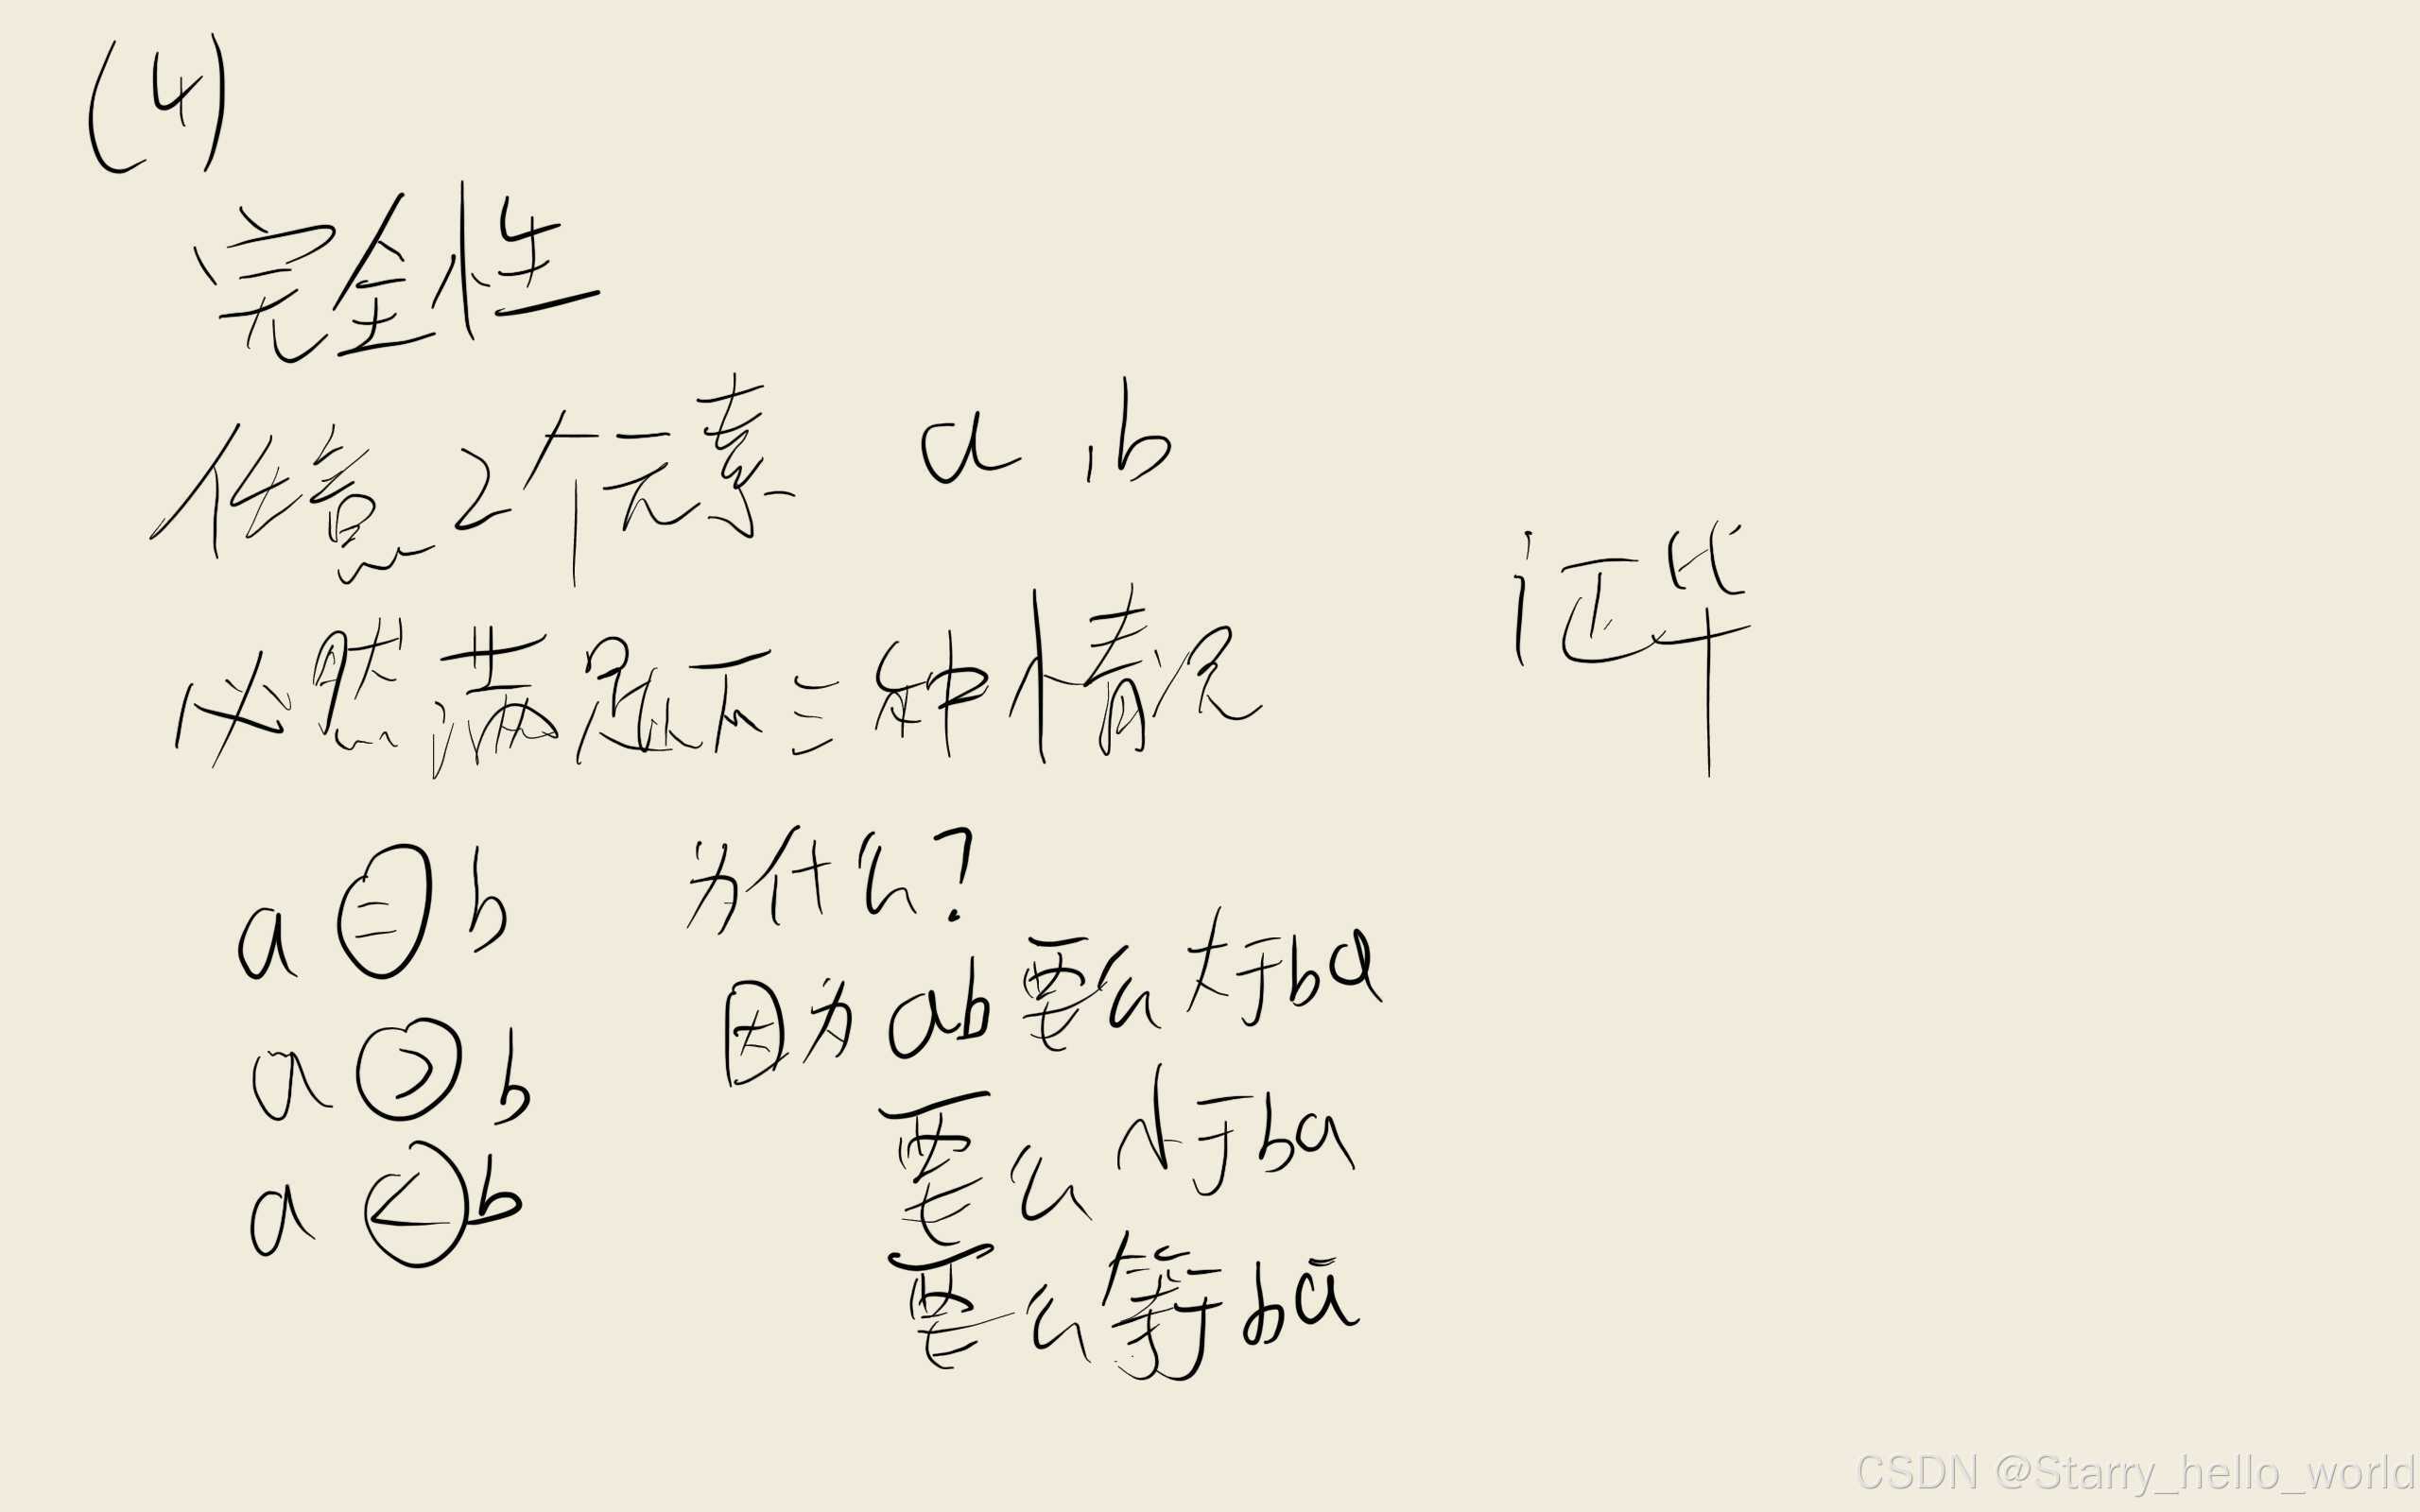 (4)
完全性
任意2个元素 a,b
必然满足下三种情况
证毕
a = b
a > b
a < b
为什么?
因为ab要么大于ba
要么小于ba
要么等于ba
CSDN @Starry_hello_world